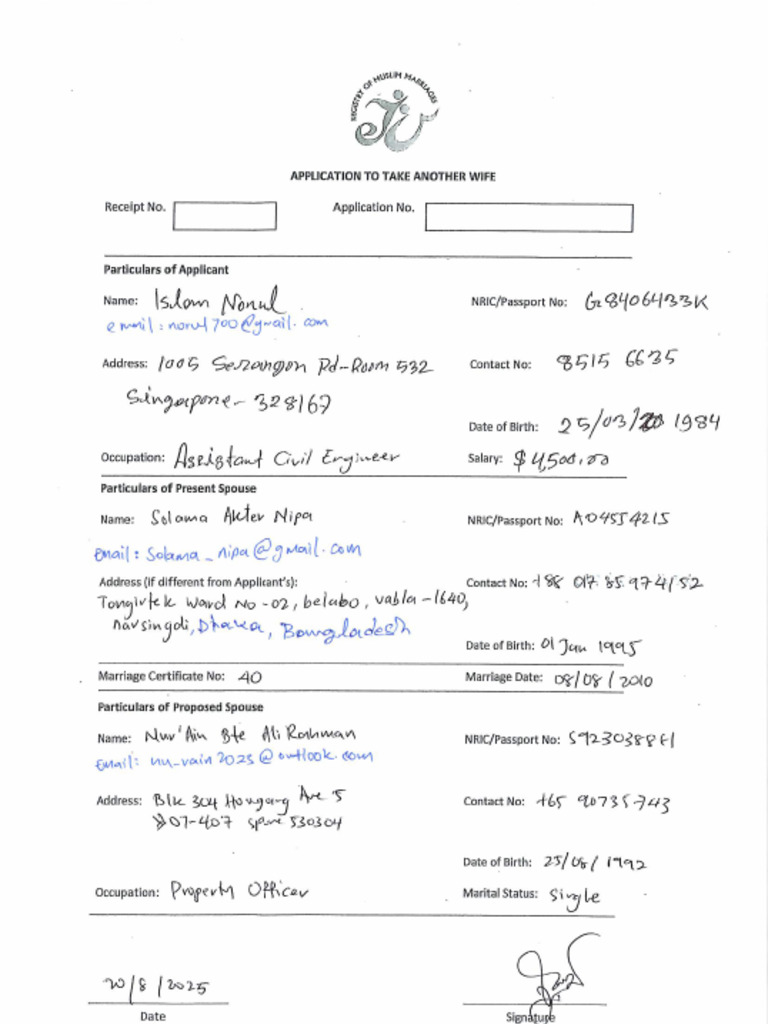 REGISTRY OF MUSLIM MARRIAGES
APPLICATION TO TAKE ANOTHER WIFE
Receipt No. Application No.
Particulars of Applicant
Name: Islam Norul NRIC/Passport No: G8406433K
email: norul700@gmail.com
Address: 1005 Serangon Rd-Room 532 Contact No: 8515 6635
Singapore- 328167
Date of Birth: 25/03/ 1984
Occupation: Assistant Civil Engineer Salary: $4,500.00
Particulars of Present Spouse
Name: Solama Akter Nipa NRIC/Passport No: A04554215
email: Solama_nipa@gmail.com
Address (if different from Applicant's): Contact No: +88 017 85 974152
Tongirtek Ward No -02, belabo, vabla -1640,
narsingdi, Dhaka, Bangladesh
Date of Birth: 01 Jan 1995
Marriage Certificate No: 40 Marriage Date: 08/08/2010
Particulars of Proposed Spouse
Name: Nur'Ain Bte Ali Rahman NRIC/Passport No: S9230388H
Email: nu_rain2025@outlook.com
Address: Blk 304 Hougang Ave 5 Contact No: +65 90735743
#07-407 S'pore 530304
Date of Birth: 25/08/1992
Occupation: Property Officer Marital Status: Single
20/8/2025
Date Signature